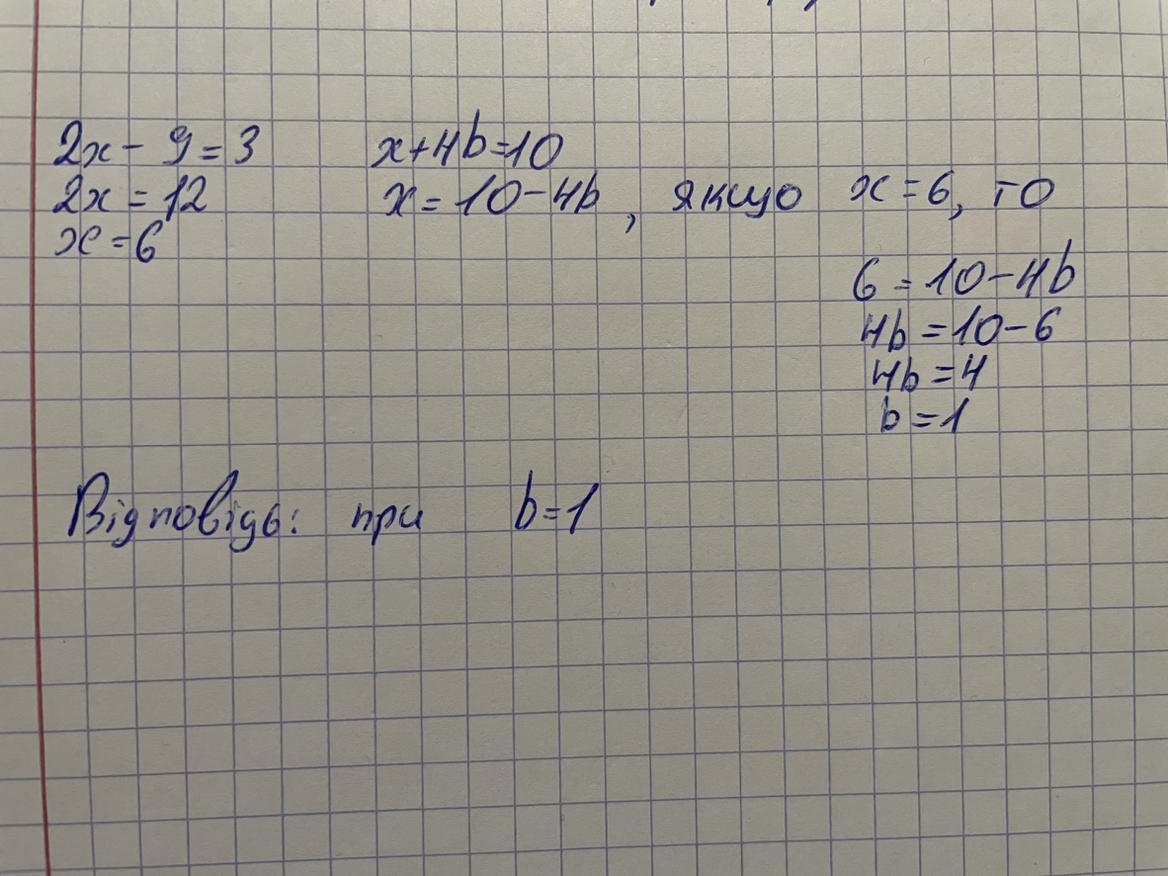 2x - 9 = 3 x + 4b = 10
2x = 12 x = 10 - 4b , якщо x = 6, то
x = 6
6 = 10 - 4b
4b = 10 - 6
4b = 4
b = 1
Відповідь: при b = 1